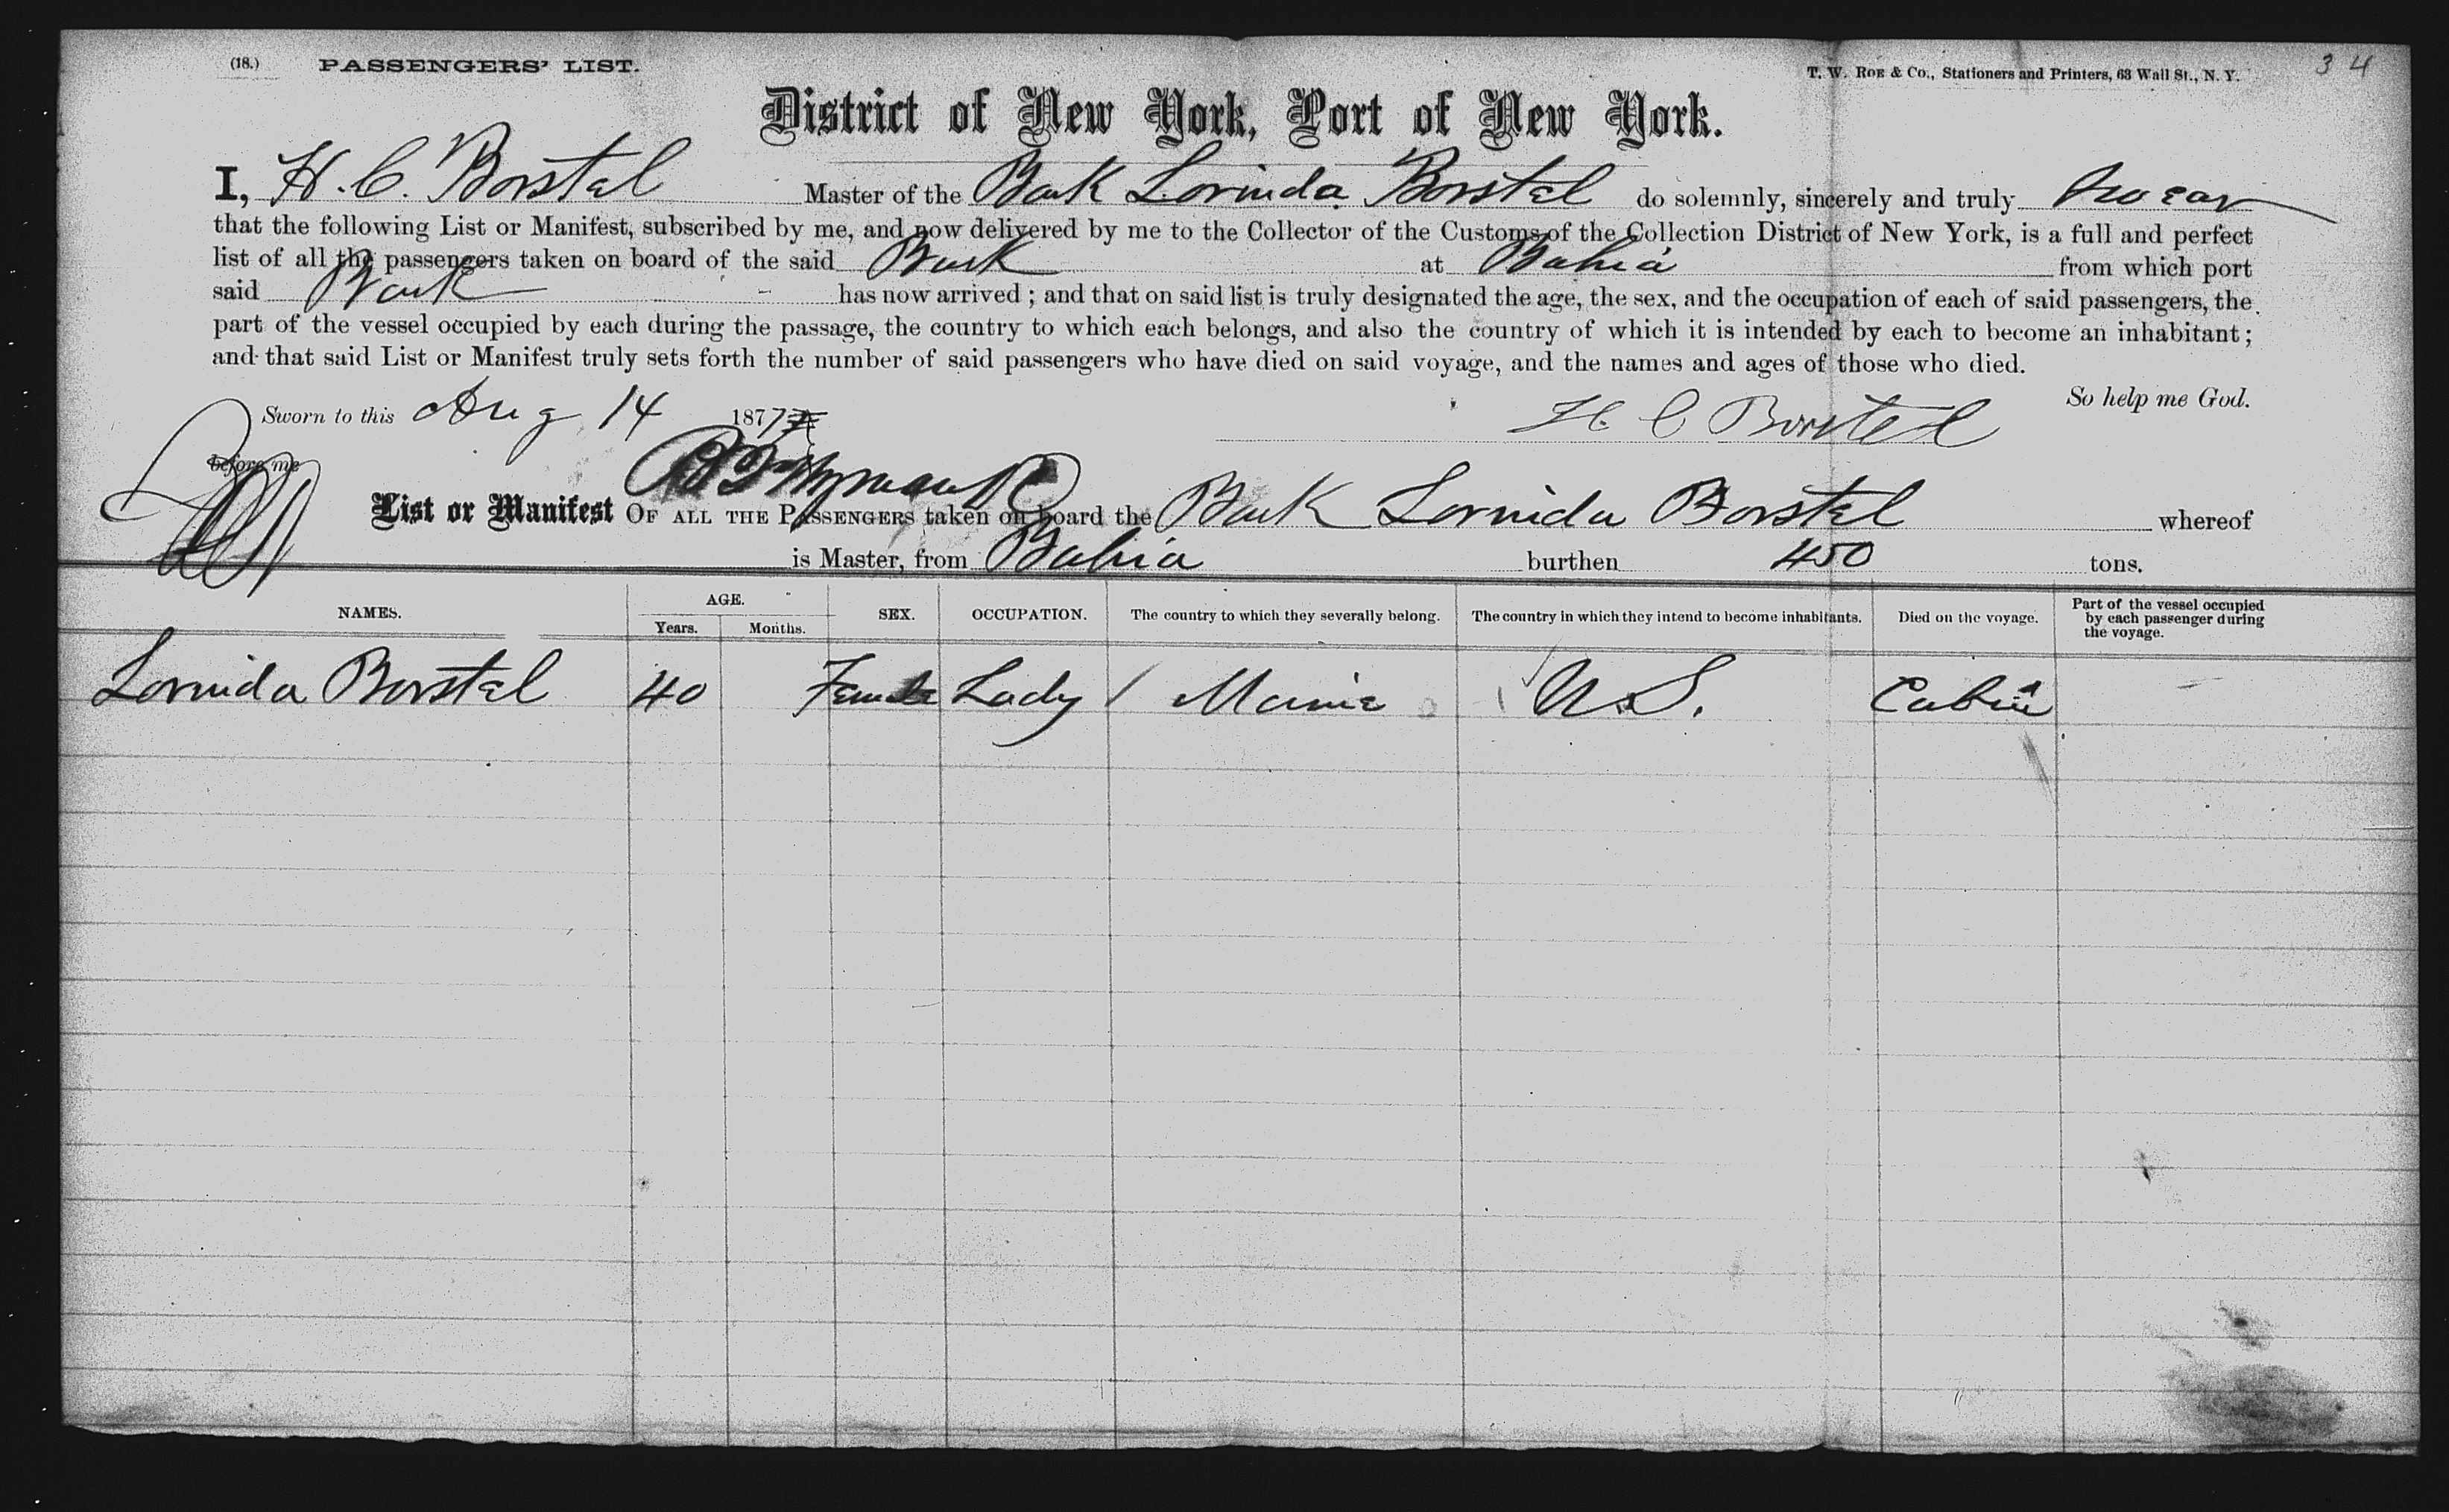 (18.) PASSENGERS' LIST. T. W. ROE & CO., Stationers and Printers, 63 Wall St., N. Y. 34
District of New York, Port of New York.
I, H. C. Borstel Master of the Bark Lorinda Borstel do solemnly, sincerely and truly swear
that the following List or Manifest, subscribed by me, and now delivered by me to the Collector of the Customs of the Collection District of New York, is a full and perfect
list of all the passengers taken on board of the said Bark at Bahia from which port
said Bark has now arrived; and that on said list is truly designated the age, the sex, and the occupation of each of said passengers, the
part of the vessel occupied by each during the passage, the country to which each belongs, and also the country of which it is intended by each to become an inhabitant;
and that said List or Manifest truly sets forth the number of said passengers who have died on said voyage, and the names and ages of those who died.
So help me God.
Sworn to this Aug 14 1877 H. C Borstel
before me
List or Manifest OF ALL THE PASSENGERS taken on board the Bark Lorinda Borstel whereof
is Master, from Bahia burthen 450 tons.
NAMES. AGE. Years. Months. SEX. OCCUPATION. The country to which they severally belong. The country in which they intend to become inhabitants. Died on the voyage. Part of the vessel occupied by each passenger during the voyage.
Lorinda Borstel 40 Female Lady / Maine U.S. Cabin